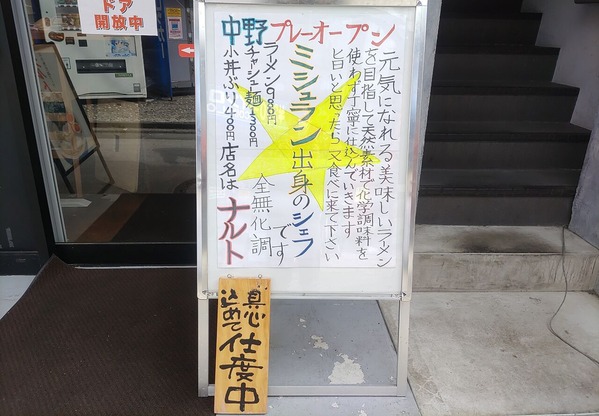 ドア
開放中
中野プレーオープン
元気になれる美味しいラーメン
を目指して天然素材で化学調味料を
使わず丁寧に仕込んでいきます
旨いと思ったら又食べに来て下さい
ミシュラン出身のシェフ
です
全無化調
ラーメン900円
チャシュー麺1300円
小丼ぶり400円
店名は
ナルト
真心
込めて仕度中